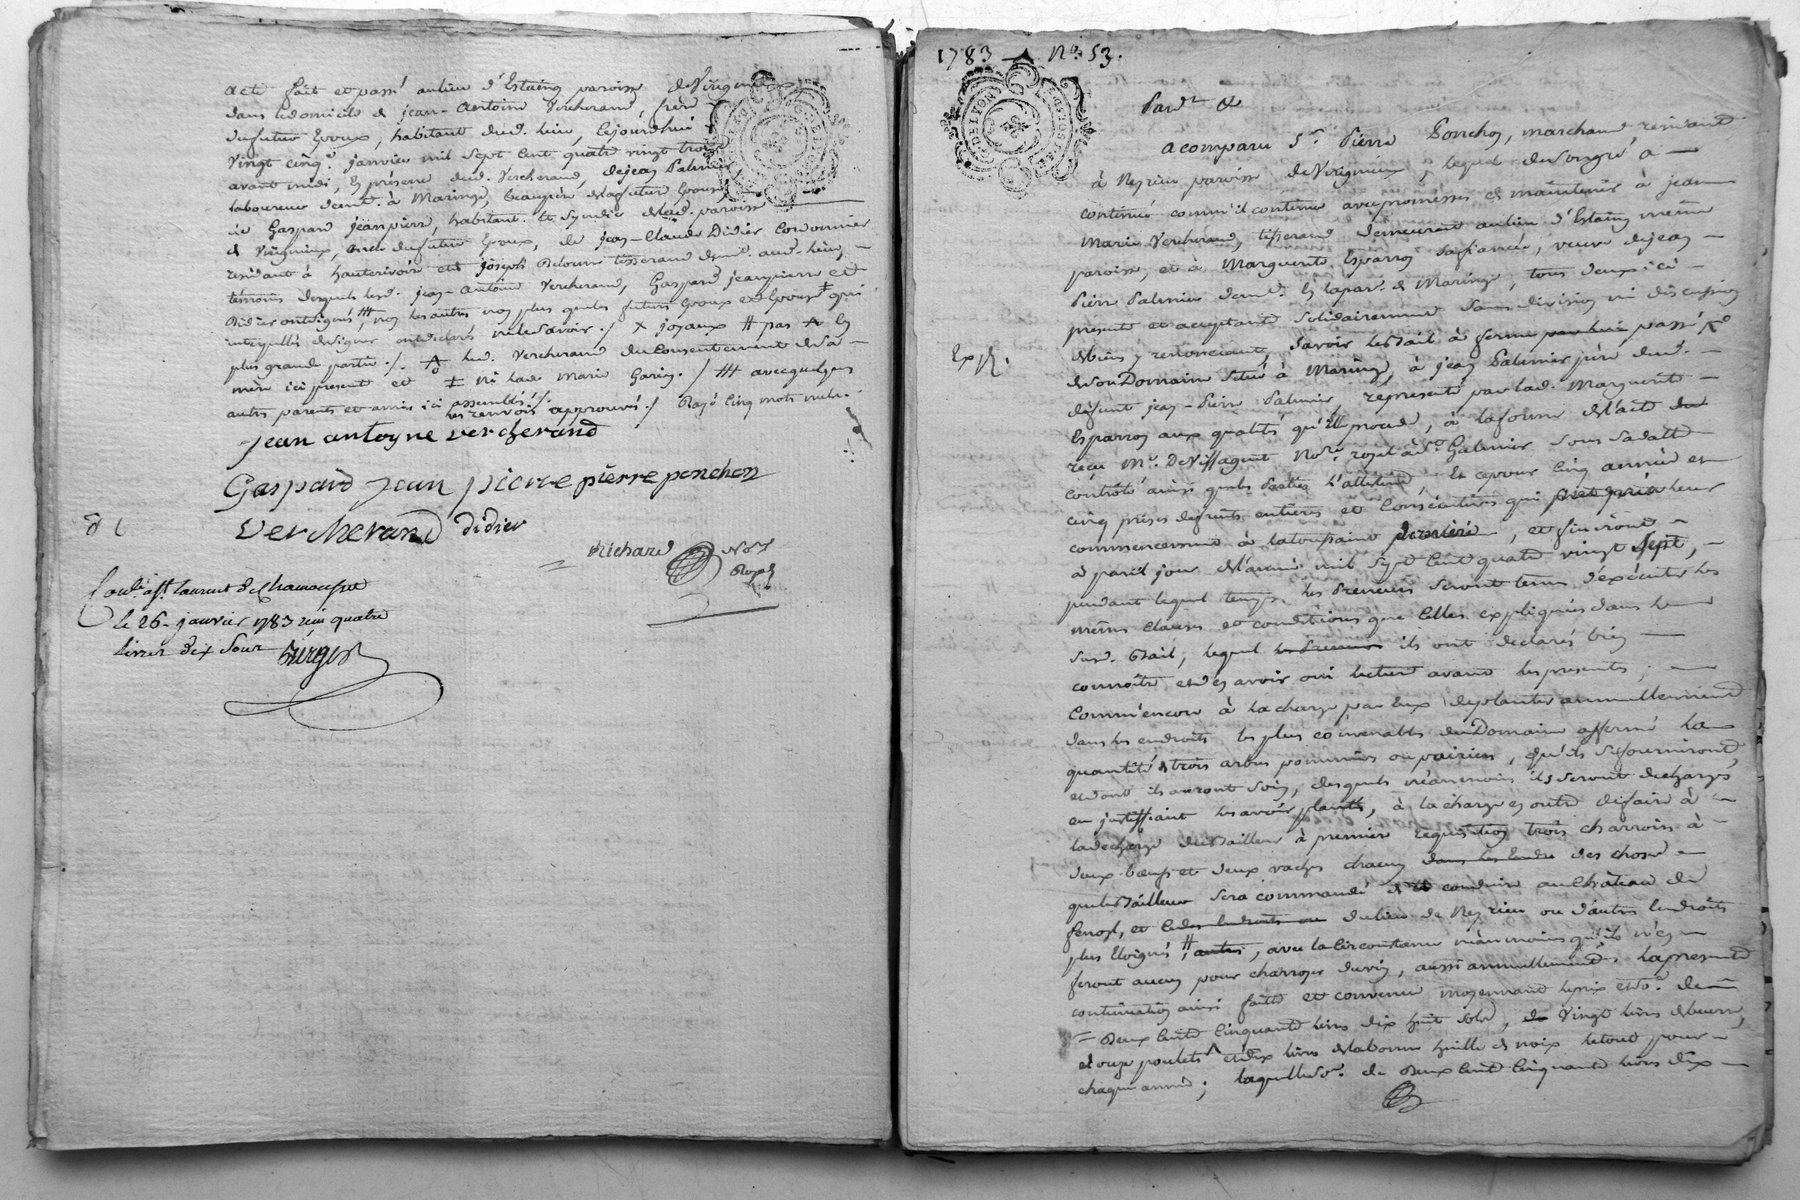 acte fait et passé au lieu d'Estaing paroisse de Virignieu
dans le domicile de jean-antoine Vercherand frere
du futur Epoux, habitant dud. lieu, cejourdhui
vingt cinq.e janvier mil sept cent quatre vingt trois
avant midi, En présence dud. Vercherand, de jean Palmier
laboureur dem.t à Maringe, beaupère de la future Epouse,
de Gaspard jeanpierre, habitant et syndic de lad. paroisse
de Virignieux, du futur Epoux, de jean-Claude Didier Cordonnier
résidant à hauterivoir et de joseph tisserand dem.t aud. lieu,
témoins desquels lesd. jean-antoine Vercherand, Gaspard jeanpierre et
Didier ont signé, non les autres non plus que les futurs Epoux et Epouse qui
interpellés de signer ont déclaré ne le savoir ./ X joyaux # pas A En
plus grande partie ./. led. Vercherand du Consentement de sa
mère ici present et ‡ ni lad. Marie ./ ## avec quelques
autres parents et amis ici assemblés ./.
les renvois approuvés ./ Rayé Cinq mots nuls.
jean antoyne vercherand
Gaspard jean pierre pierre ponchon
vercherand didier
Richard No.re
Royal
Con.lé à S.t Laurent de Chamousset
le 26 janvier 1783 reçu quatre
livres dix sous
1783 No. 53.
Pard.t &
a comparu S.r Pierre Ponchon, marchand résidant
à Neyrieu paroisse de Virignieux, lequel de son gré a
continué comm'il continue avec promesses de maintenir à jean
Marie Vercherand, tisserand demeurant au lieu d'Estaing même
paroisse, et à Marguerite Esparron sa fiancée, veuve de jean
Pierre Palmier dem.t En la par. de Maringe, tous deux ici
présents et acceptant solidairement sans division ni discussion
de biens y renonçant, savoir le Bail à ferme par lui passé
Exp.
de son Domaine situé à Maringe, à jean Palmier père dud.
défunt jean-Pierre Palmier représenté par lad. Marguerite
Esparron aux qualités qu'Elle procède, à la forme de l'acte
reçu M.e DeVissaguet No.re royal à S.t Galmier sous sa datte
contrôlé ainsi que les Parties l'attestent, Et ce pour Cinq années et
cinq prises de fruits entières et Consécutives qui leur
commencement à la toussaint dernière, et finiront
à pareil jour de l'année mil sept cent quatre vingt sept,
pendant lequel temps les Preneurs seront tenus d'exécuter les
mêmes clauses et conditions que Celles expliquées dans le
susd. Bail, lequel ils ont déclarés bien
connoître et d'en avoir oui lecture avant les présentes ;
Comm'encore à la charge par Eux de planter annuellement
dans les endroits les plus convenables du Domaine affermé la
quantité de trois arbres pommiers ou poiriers, qu'ils se fourniront,
et dont ils auront soin, desquels néanmoins ils seront déchargés
en justifiant les avoir plantés, à la charge en outre de faire à
la décharge du Bailleur à première réquisition trois charrois à
deux boeufs et deux vaches chacun dans les Endr des choses
que le Bailleur sera commandé de conduire au Château de
et du lieu de Neyrieu ou d'autres Endroits
plus Eloignés # autres, avec la Circonstance néanmoins qu'ils n'en
feront aucun pour charroyer du vin, aussi annuellement la présente
continuation ainsi faitte et convenue moyennant le prix et so.e de
= Deux Cent Cinquante livres dix huit sols, de vingt livres de beurre,
douze poulets et dix livres de la bonne huille de noix le tout pour
chaque année ; laquelle So.e de Deux Cent Cinquante livres dix